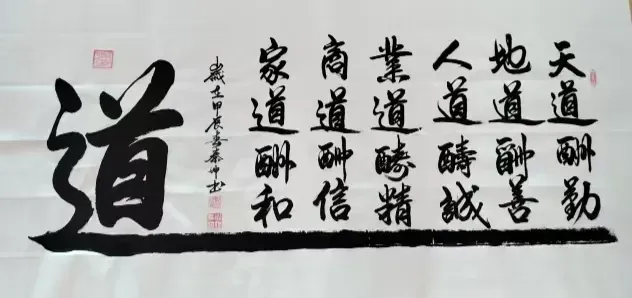 天道酬勤
地道酬善
人道醻誠
業道醻精
商道酬信
家道酬和
歲在甲辰春书
道